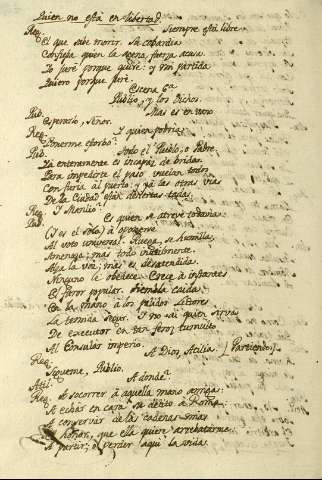 Quien no está en libertad.
Reg. Siempre está libre
El que sabe morir. Su cobardia
Confiesa quien la agena fuerza acusa.
Yo juré porque quise: y mi partida
Quiero porque juré.
Escena 6ª
Publio, y los Dichos.
Pub. Mas es en vano
Esperarlo, Señor.
Reg. Y quien podria
Ponerme estorbo?
Pub. Todo el Pueblo, o Padre.
Ya enteramente es incapaz de bridas.
Para impedirte el paso vuelan todos
Con furia al puerto: y yá las otras vias
De la Ciudad están desiertas todas.
Reg. Y Manlio?
Pub. Es quien se atreve todavia
(Y es el solo) à oponerse
Al voto universal. Ruega, se humilla,
Amenaza; mas todo inutilmente.
Alza la voz; mas es desatendida.
Ninguno le obedece. Crece à instantes
El furor popular. Tiembla caida
En la mano à los palidos Lictores
La temida segur. Y no hai quien sirva
De executor en tan feroz tumulto
Al Consular imperio.
Reg. A Dios, Atilia (Partiendo)
Sigueme, Publio.
Atil. A donde?
Reg. A socorrer à aquella mano amiga:
A echar en cara su delito à Roma:
A conservar de las cadenas mias
El honor, que ella quiere arrebatarme:
A partir; ò perder aqui la vida.